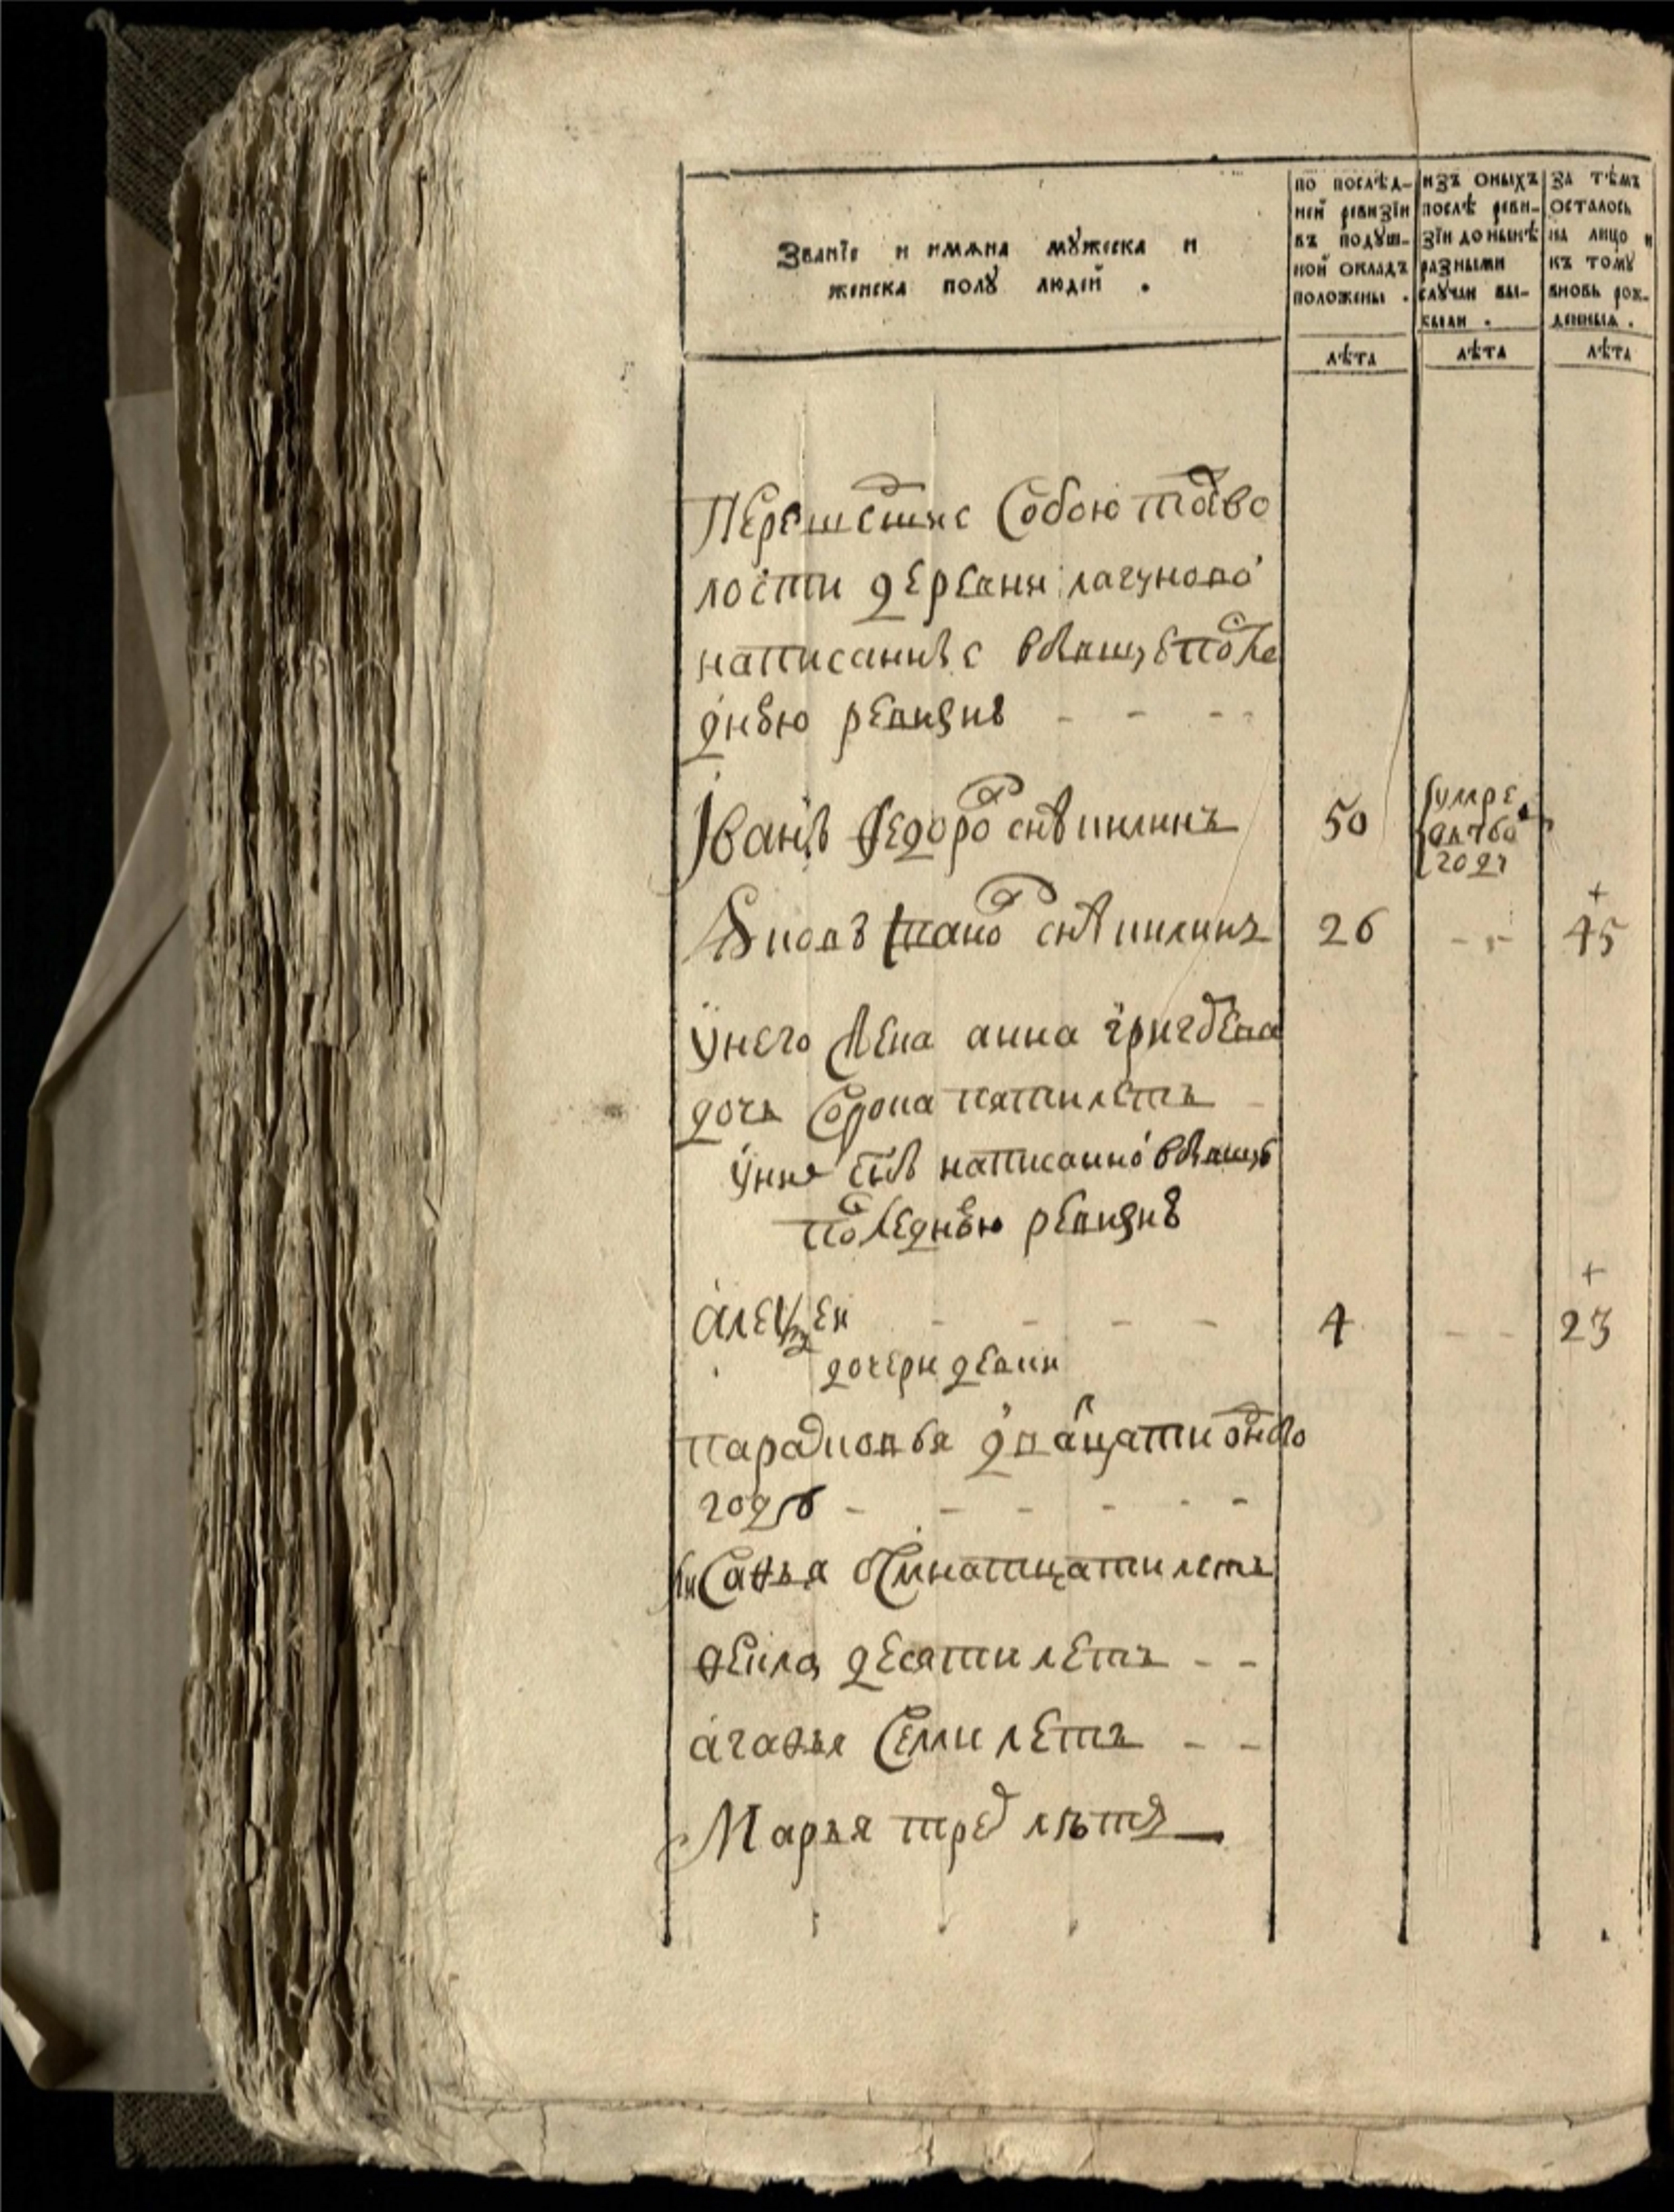 Званїе и имѧна мꙋжеска и
женска полꙋ людей .
по послѣд-
ней ревизїи
въ подꙋш-
ной окладъ
положены .
изъ оныхъ
послѣ реви-
зїи до нынѣ
разными
случаи вы-
были .
за тѣмъ
осталось
на лицо и
къ томꙋ
вновь рож-
денныѧ .
лѣта
лѣта
лѣта
собою той во
лости деревни лагуново
написанные вбывшую после
днюю ревизию
Іванъ федоров снъ 50 умре
году
снъ 26 45
унего жена анна григорева
дочь сорока пяти летъ
унихъ снъ написанной вбывшую
последнюю ревизию
алексей 4 23
дочери девки
парасковья двацати одного
году
осмнатцати летъ
фекла десяти летъ
агафья семи летъ
Марья трех лѣтъ